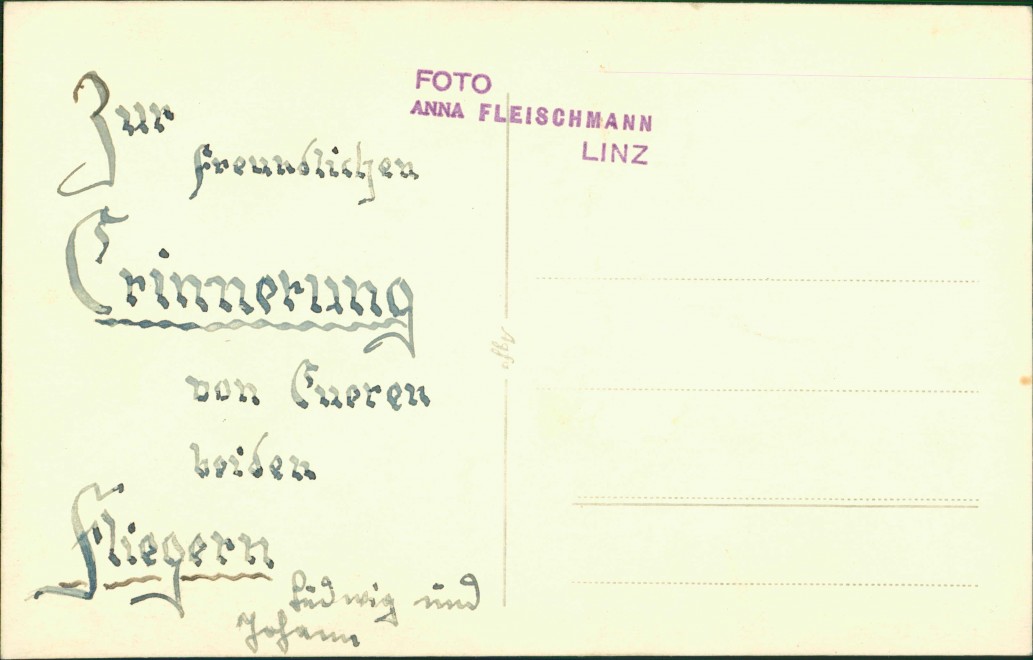 Zur
freundlichen
Erinnerung
von Eueren
beiden
Fliegern
Ludwig und
Johann
FOTO
ANNA FLEISCHMANN
LINZ